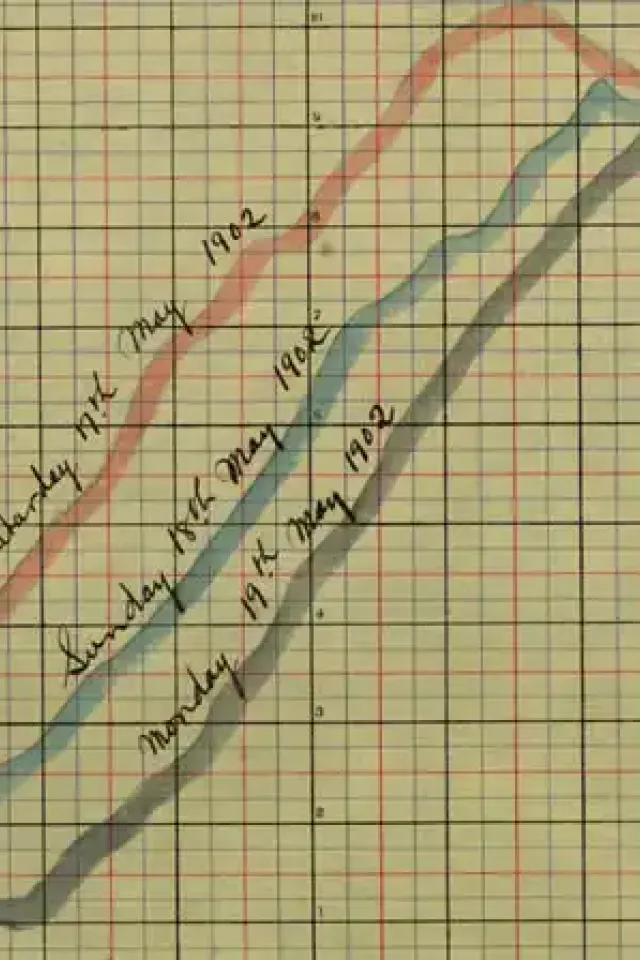 10
9
8
7
6
4
3
2
1
17th May 1902
Sunday 18th May 1902
Monday 19th May 1902